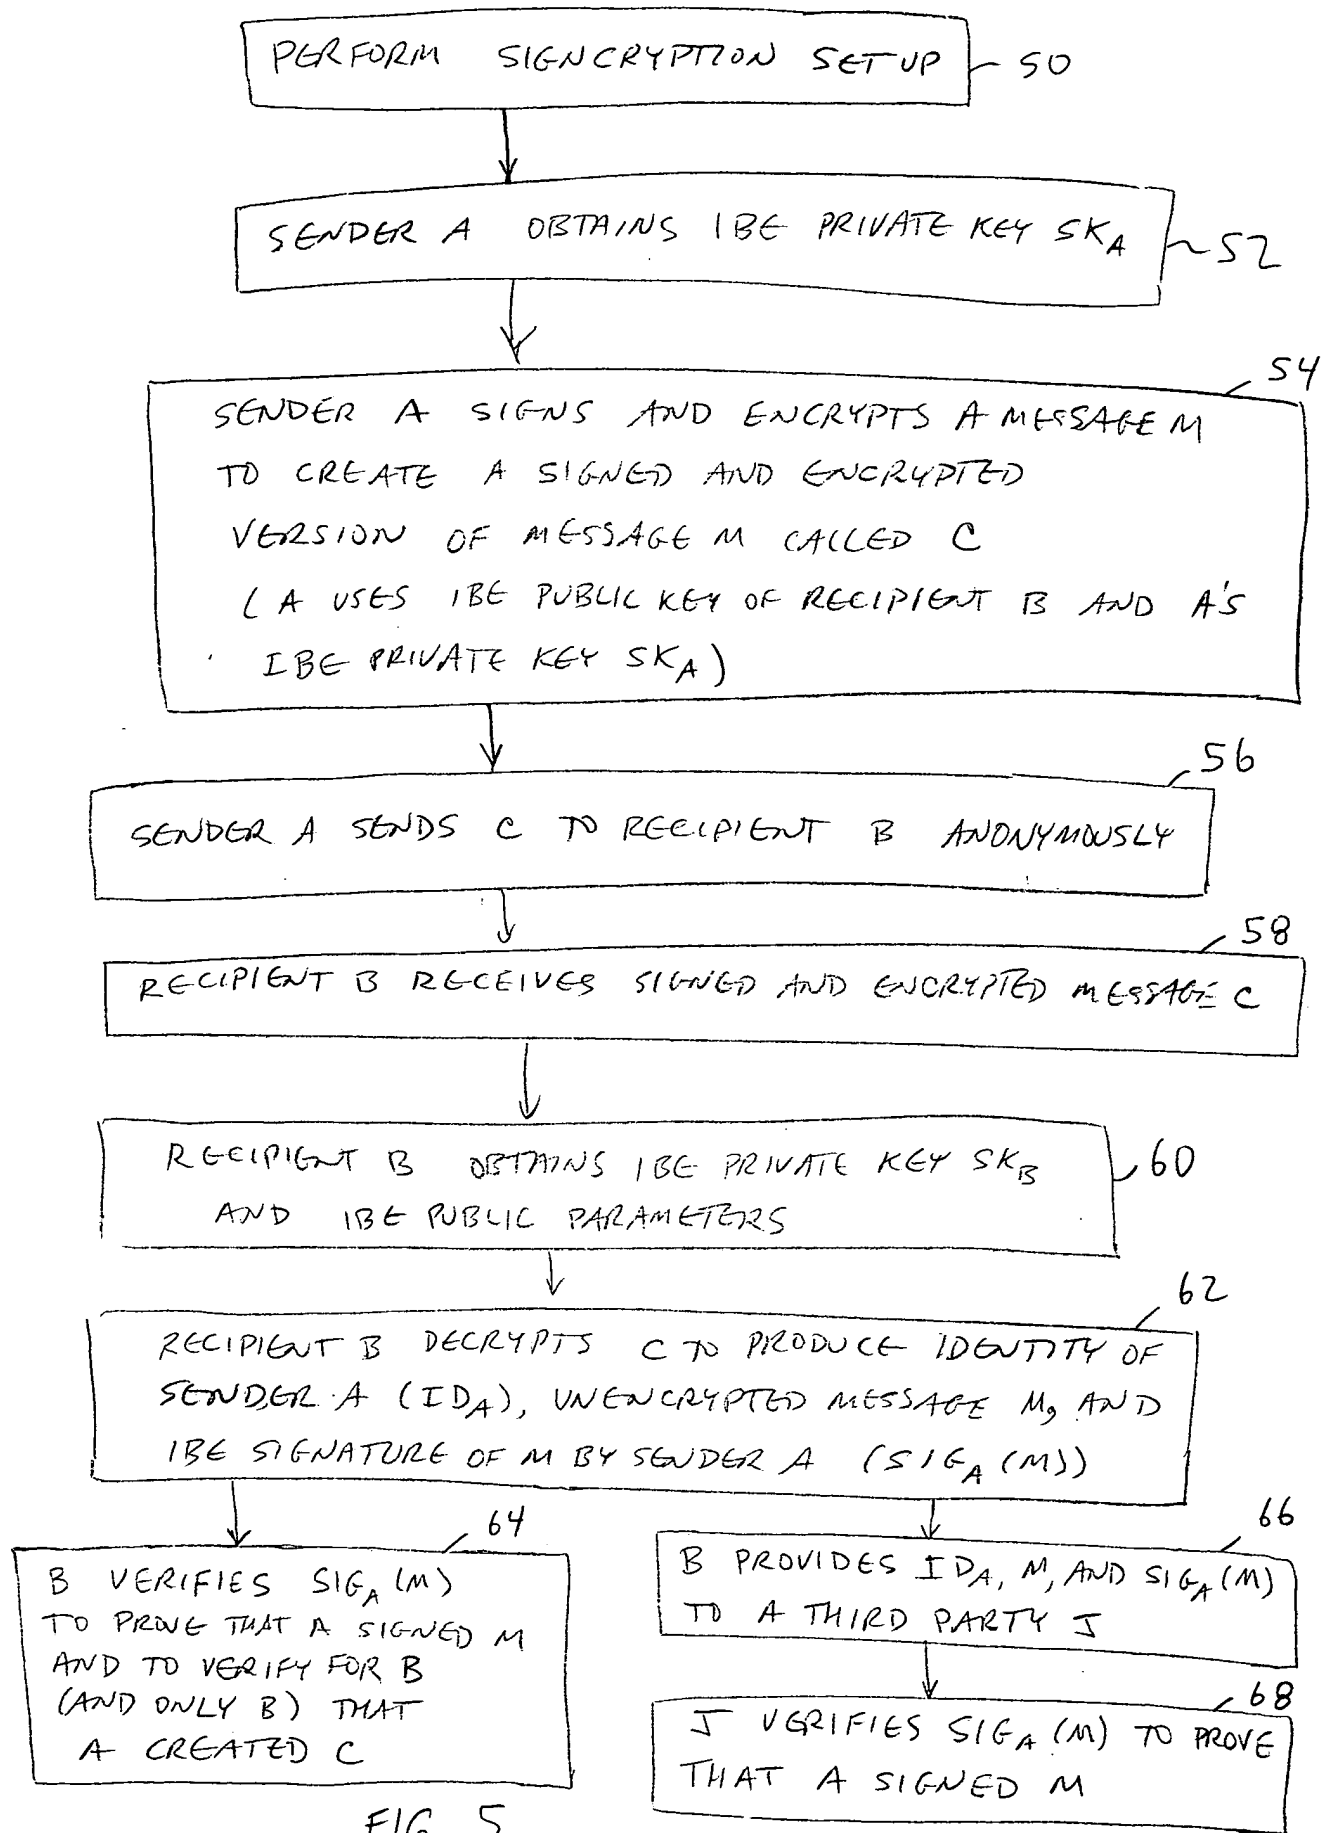 PERFORM SIGNCRYPTION SETUP 50
SENDER A OBTAINS IBE PRIVATE KEY SKA 52
54
SENDER A SIGNS AND ENCRYPTS A MESSAGE M
TO CREATE A SIGNED AND ENCRYPTED
VERSION OF MESSAGE M CALLED C
(A USES IBE PUBLIC KEY OF RECIPIENT B AND A'S
IBE PRIVATE KEY SKA)
56
SENDER A SENDS C TO RECIPIENT B ANONYMOUSLY
58
RECIPIENT B RECEIVES SIGNED AND ENCRYPTED MESSAGE C
RECIPIENT B OBTAINS IBE PRIVATE KEY SKB 60
AND IBE PUBLIC PARAMETERS
62
RECIPIENT B DECRYPTS C TO PRODUCE IDENTITY OF
SENDER A (IDA), UNENCRYPTED MESSAGE M, AND
IBE SIGNATURE OF M BY SENDER A (SIGA (M))
64
B VERIFIES SIGA (M)
TO PROVE THAT A SIGNED M
AND TO VERIFY FOR B
(AND ONLY B) THAT
A CREATED C
66
B PROVIDES IDA, M, AND SIGA (M)
TO A THIRD PARTY J
68
J VERIFIES SIGA (M) TO PROVE
THAT A SIGNED M
FIG. 5